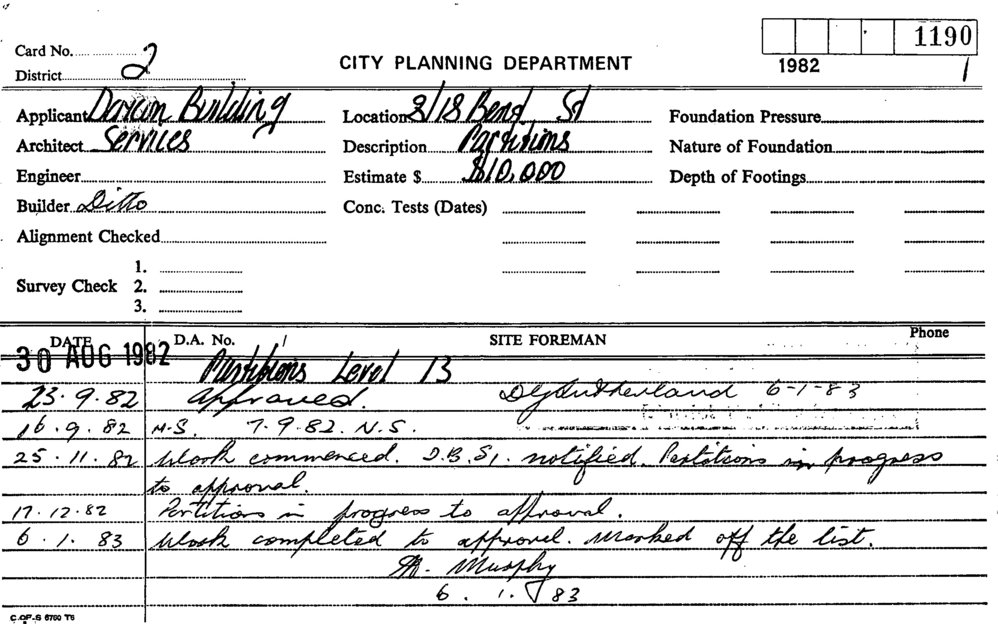 Card No. 2
District
CITY PLANNING DEPARTMENT
1190
1982
1
Applicant Building
Location 8/18 Bend St
Foundation Pressure
Architect Services
Description Partitions
Nature of Foundation
Engineer
Estimate $ $10,000
Depth of Footings
Builder Ditto
Conc. Tests (Dates)
Alignment Checked
Survey Check
1.
2.
3.
DATE
D.A. No.
SITE FOREMAN
Phone
30 AUG 1982
Partitions Level 13
23.9.82 Approved. Sutherland 6-1-83
16.9.82 N.S. 7.9.82. N.S.
25.11.82 Work commenced. D.B.S. notified. Partitions in progress
to approval.
17.12.82 Partitions in progress to approval.
6.1.83 Work completed to approval. Marked off the list.
Murphy
6.1.83
C.OF.S 6760 T6